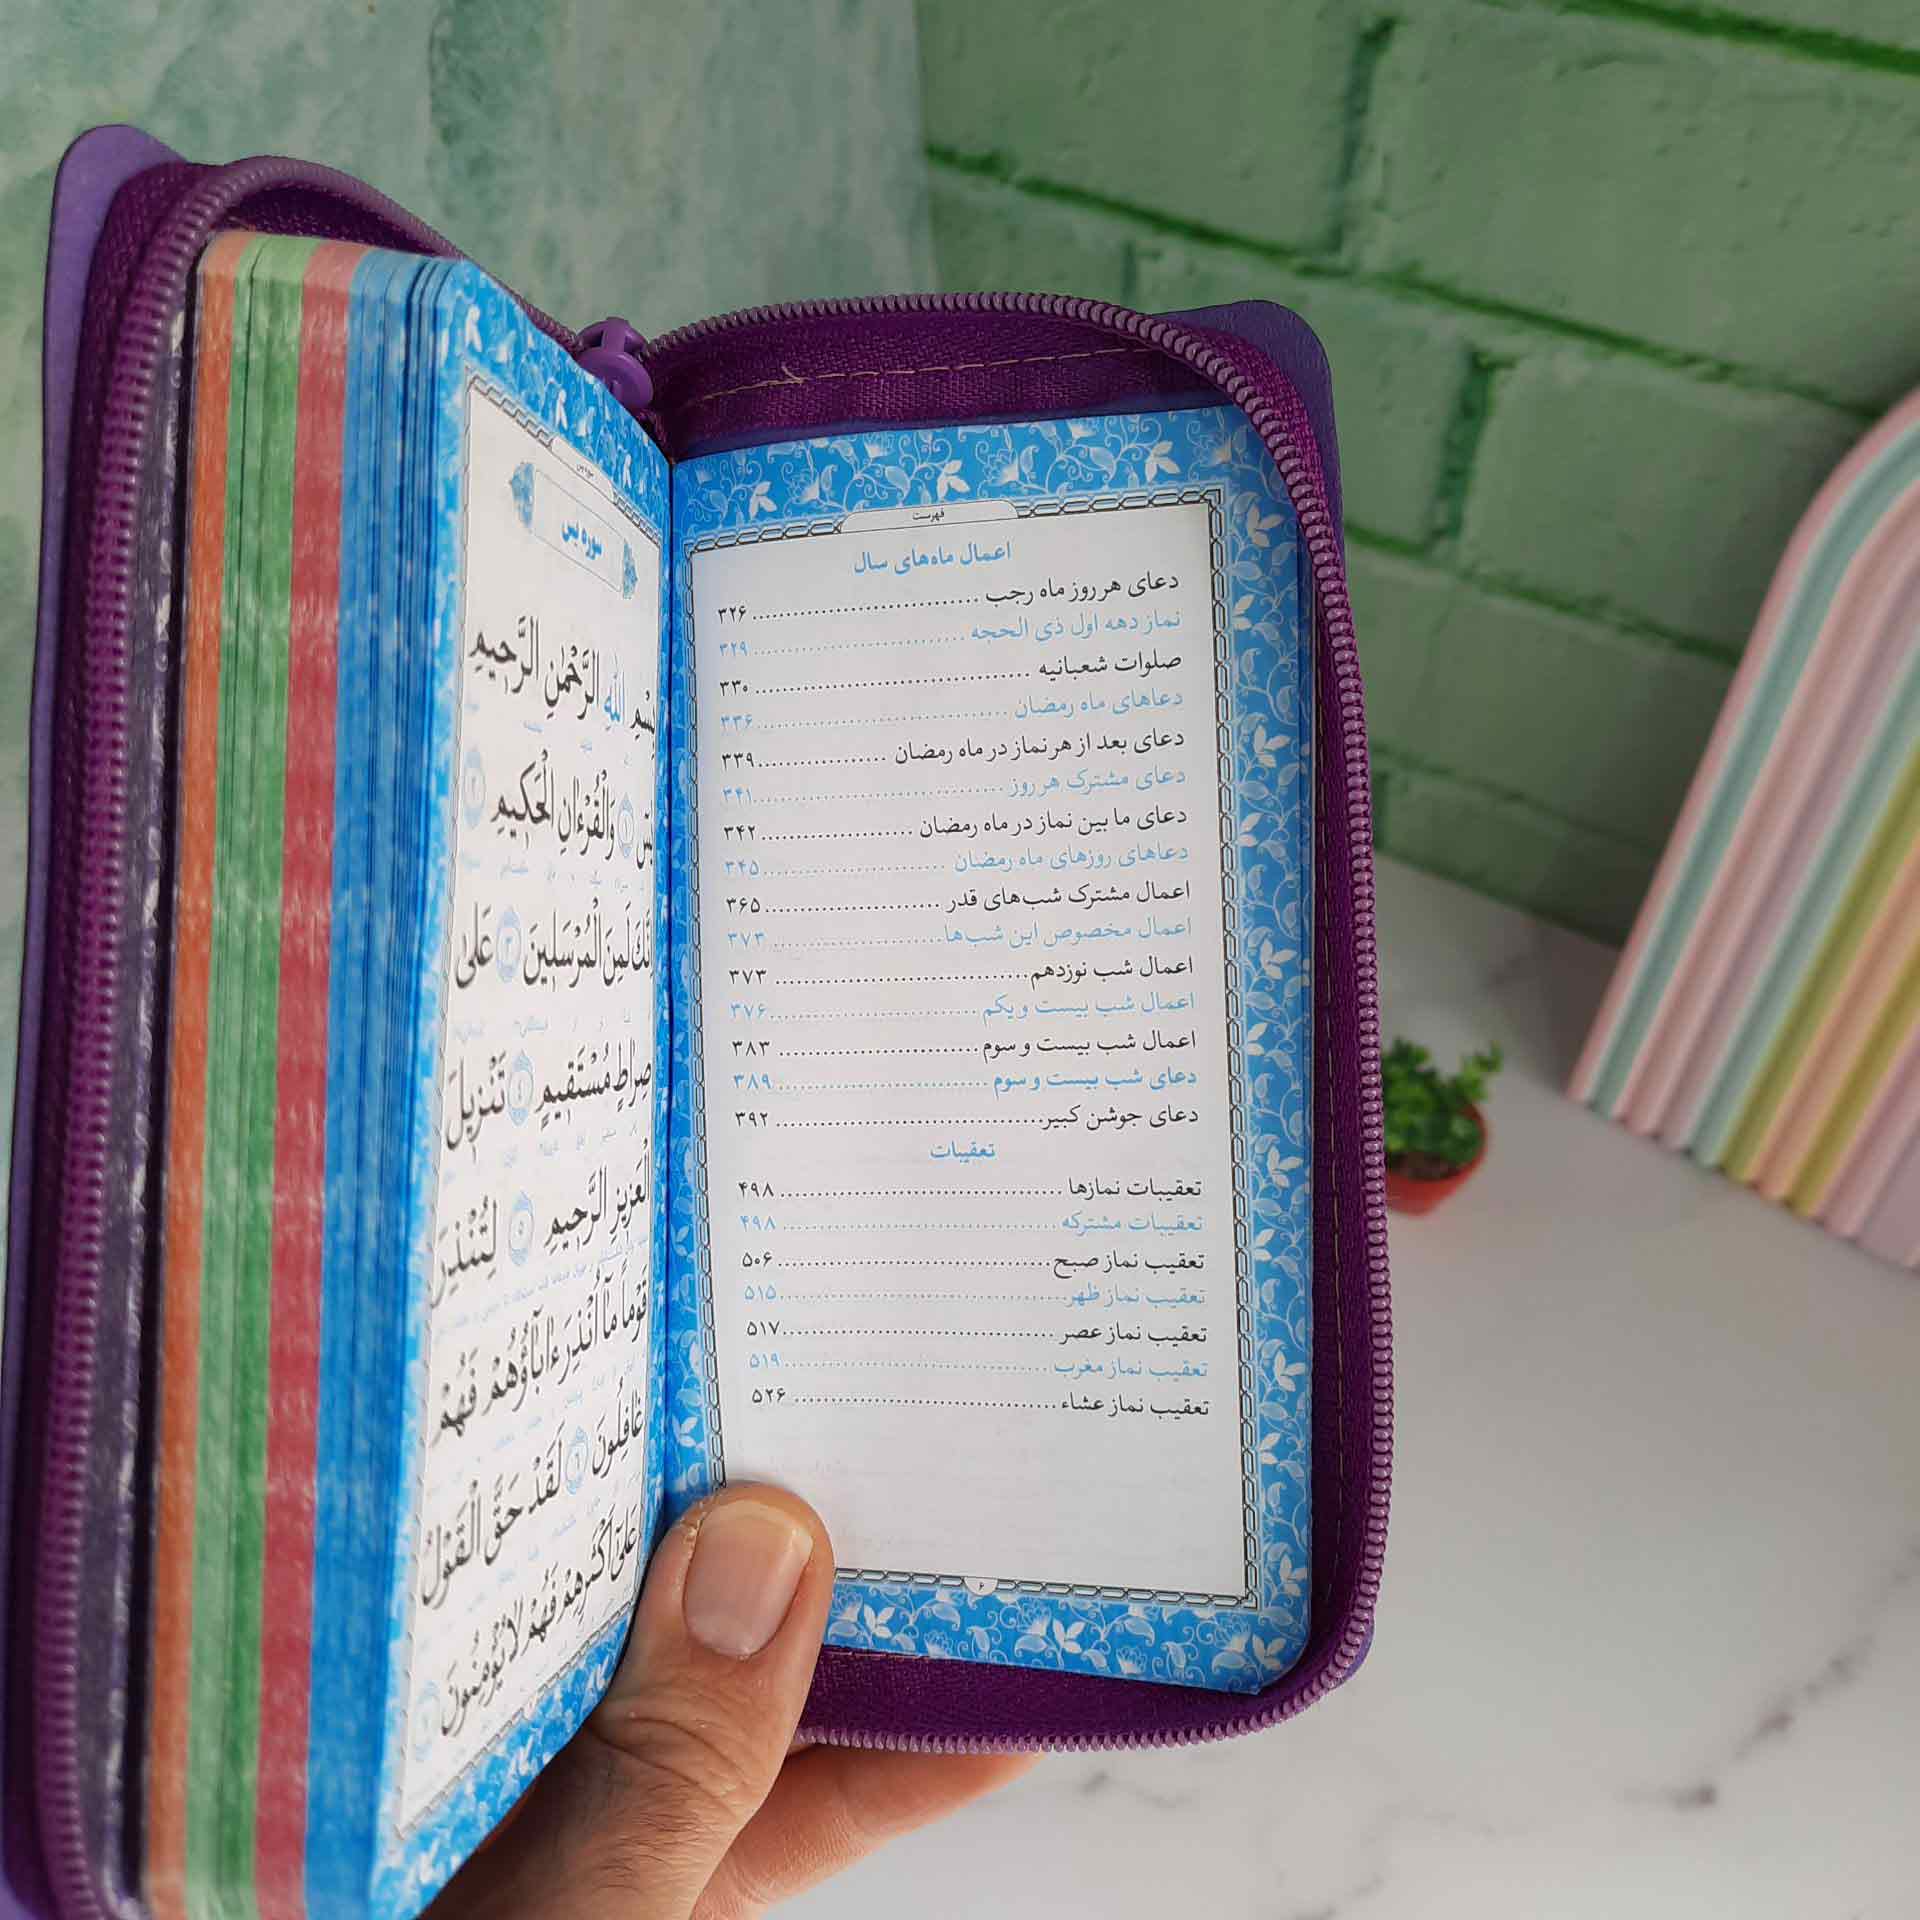 فهرست
اعمال ماه‌های سال
دعای هر روز ماه رجب ... ۳۲۶
نماز دهه اول ذی الحجه ... ۳۲۹
صلوات شعبانیه ... ۳۳۰
دعاهای ماه رمضان ... ۳۳۶
دعای بعد از هر نماز در ماه رمضان ... ۳۳۹
دعای مشترک هر روز ... ۳۴۱
دعای ما بین نماز در ماه رمضان ... ۳۴۲
دعاهای روزهای ماه رمضان ... ۳۴۵
اعمال مشترک شب‌های قدر ... ۳۶۵
اعمال مخصوص این شب‌ها ... ۳۷۳
اعمال شب نوزدهم ... ۳۷۳
اعمال شب بیست و یکم ... ۳۷۶
اعمال شب بیست و سوم ... ۳۸۳
دعای شب بیست و سوم ... ۳۸۹
دعای جوشن کبیر ... ۳۹۲
تعقیبات
تعقیبات نمازها ... ۴۹۸
تعقیبات مشترکه ... ۴۹۸
تعقیب نماز صبح ... ۵۰۶
تعقیب نماز ظهر ... ۵۱۵
تعقیب نماز عصر ... ۵۱۷
تعقیب نماز مغرب ... ۵۱۹
تعقیب نماز عشاء ... ۵۲۶
۶
سوره یس
سوره یس
بِسْمِ اللهِ الرَّحْمٰنِ الرَّحِیمِ
یسٓ ﴿۱﴾ وَالْقُرْءَانِ الْحَکِیمِ ﴿۲﴾
إِنَّكَ لَمِنَ الْمُرْسَلِینَ ﴿۳﴾ عَلَی
صِرَاطٍ مُسْتَقِیمٍ ﴿٤﴾ تَنْزِیلَ
الْعَزِیزِ الرَّحِیمِ ﴿٥﴾ لِتُنْذِرَ
قَوْماً مَآ اُنْذِرَ ءَابَآؤُهُمْ فَهُمْ
غَافِلُونَ ﴿٦﴾ لَقَدْ حَقَّ الْقَوْلُ
عَلَیٓ أَکْثَرِهِمْ فَهُمْ لَا یُؤْمِنُونَ ﴿٧﴾